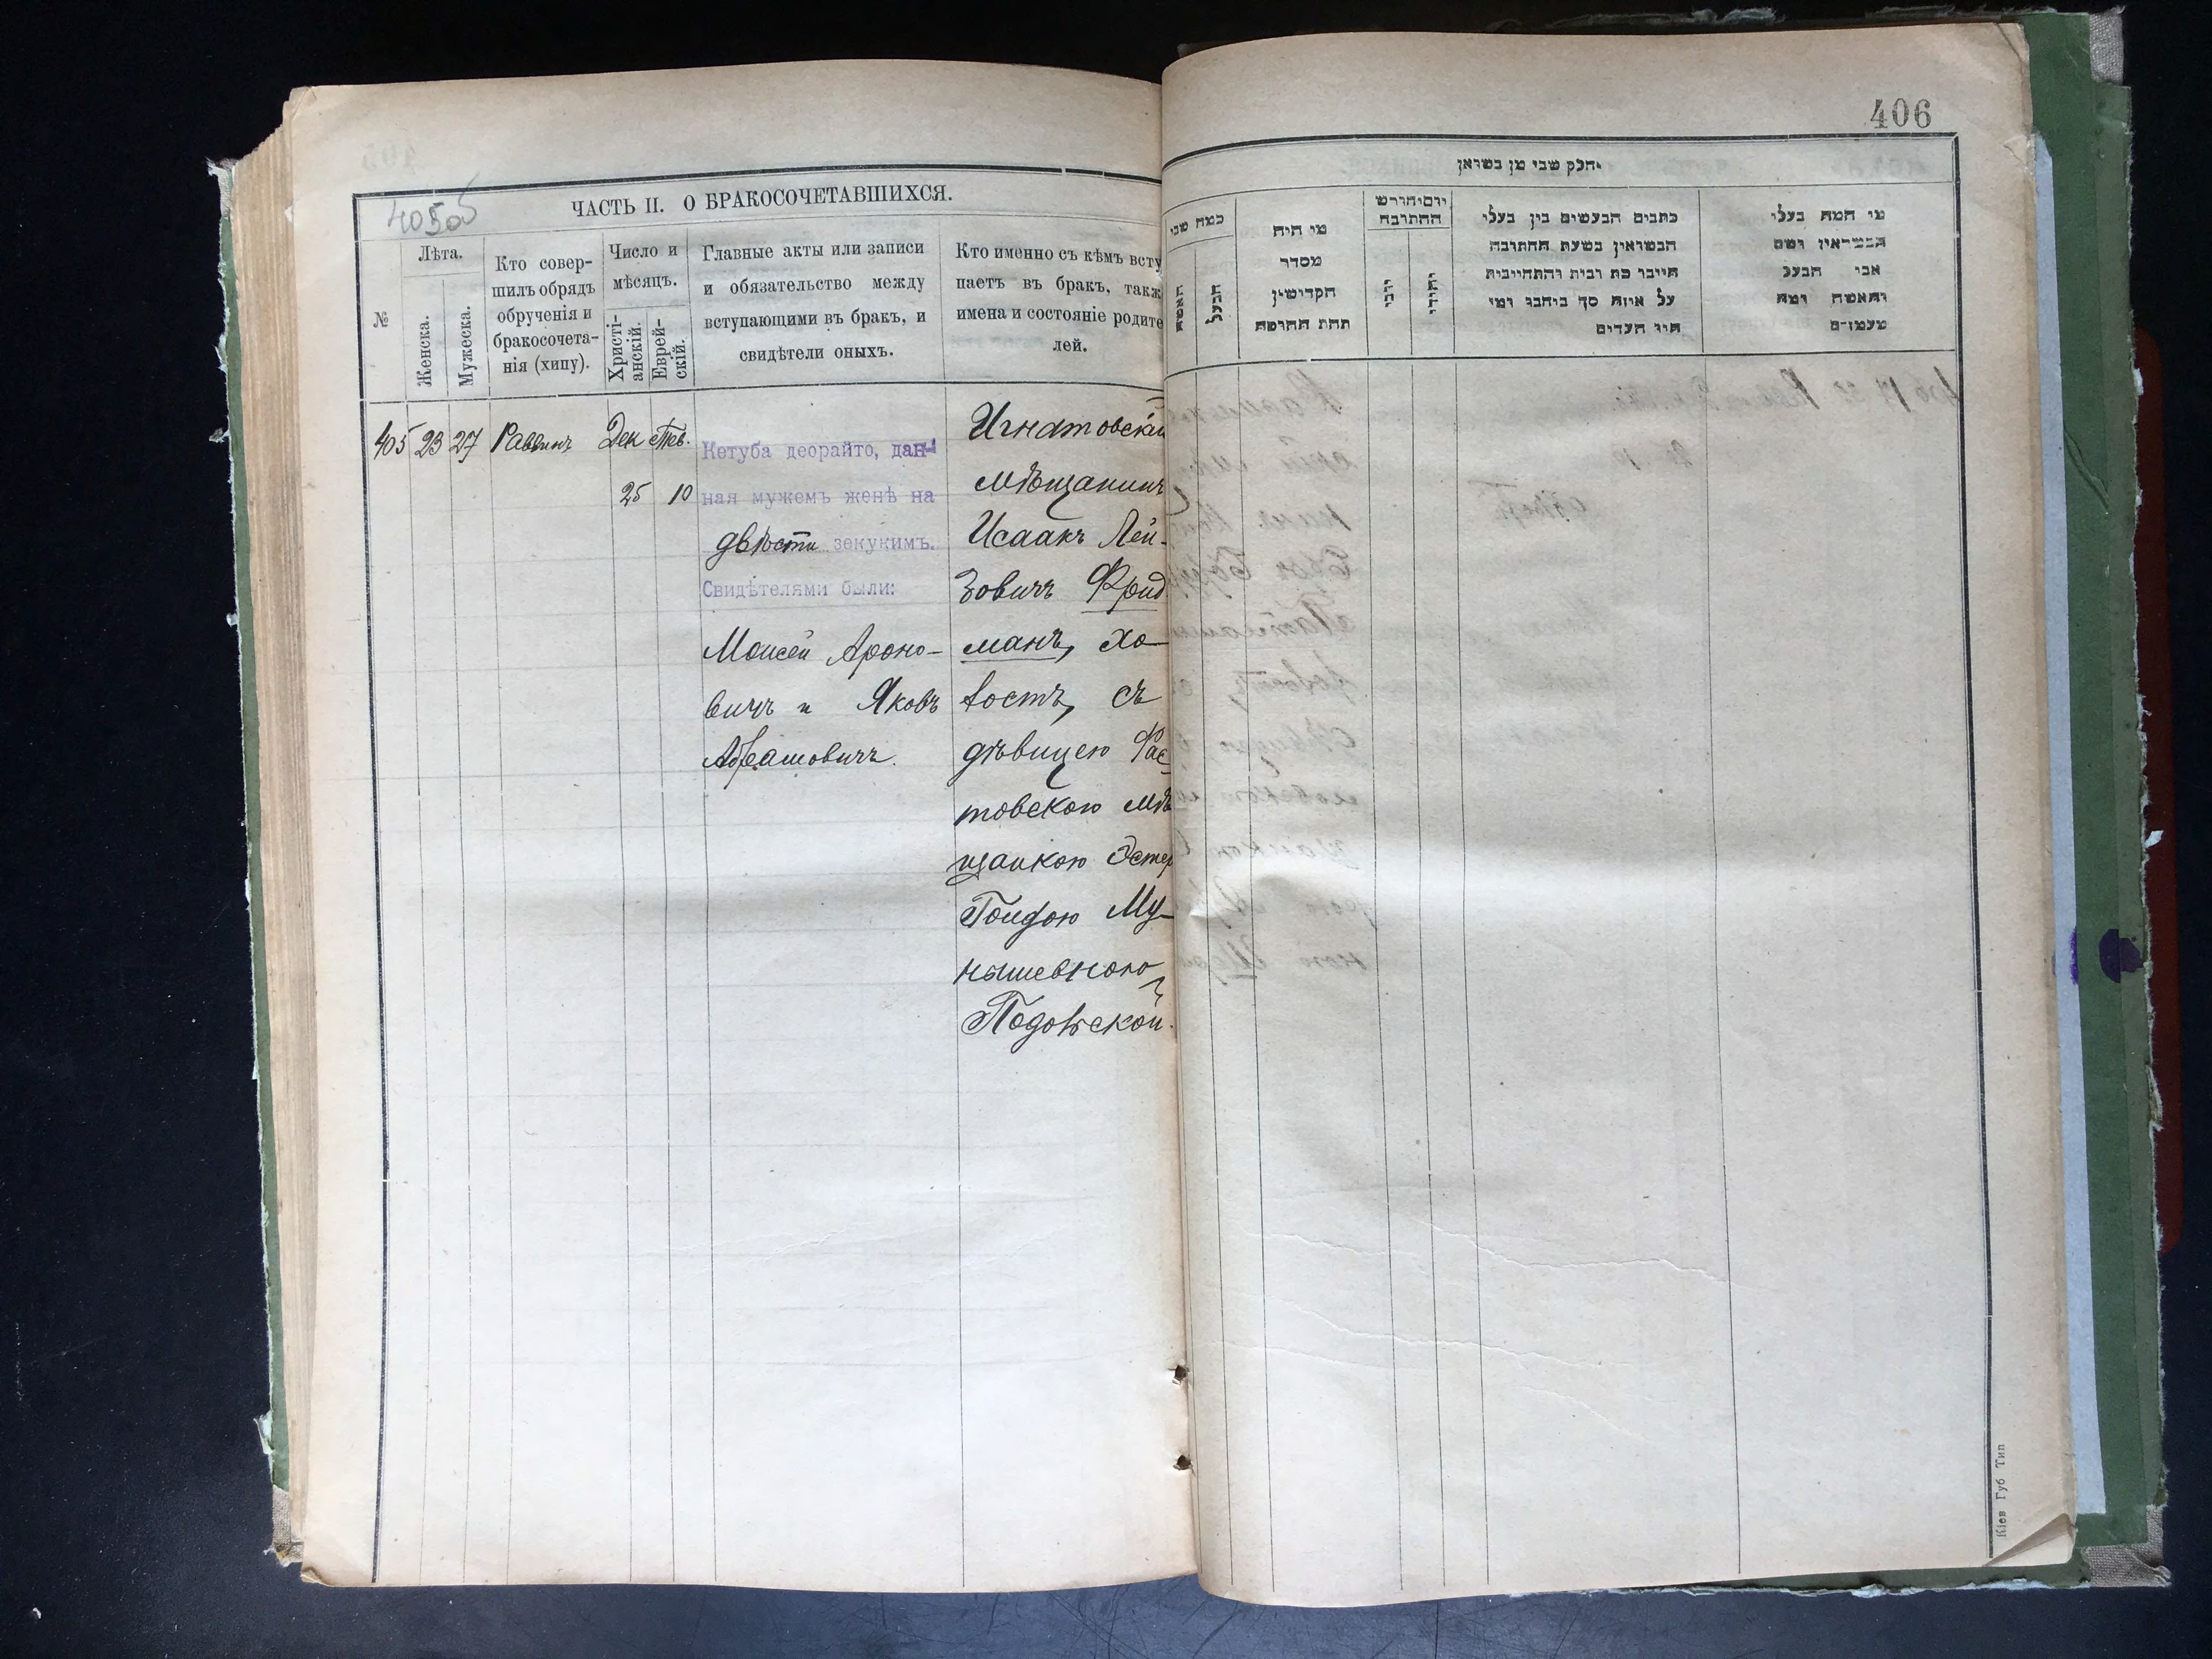 405
ЧАСТЬ II. О БРАКОСОЧЕТАВШИХСЯ.
№
Лѣта.
Женска.
Мужеска.
Кто совер-
шилъ обрядъ
обрученія и
бракосочета-
нія (хипу).
Число и
мѣсяцъ.
Христі-
анскій.
Еврей-
скій.
Главные акты или записи
и обязательство между
вступающими въ бракъ, и
свидѣтели оныхъ.
Кто именно съ кѣмъ всту
паетъ въ бракъ, такж
имена и состояніе родите
лей.
405 23 27 Раввинъ Дек Тев.
25 10
Кетуба деорайто, дан-
ная мужемъ женѣ на
двѣсти зекукимъ.
Свидѣтелями были:
Моисей Ароно-
вичъ и Яковъ
Абрамовичъ.
Игнатовскій
мѣщанинъ
Исаакъ Лей-
зовичъ Фрид
манъ, хо-
лостъ, съ
дѣвицею Фас-
товскою мѣ
щанкою Эстер
Гольдою Му-
нышевною
Подольской.
406
חלק שני מן בשואין
כמה שני
האשה
הבעל
מי היה
מסדר
הקדושין
תחת החופה
יום וחודש
החתונה
יוני
יהודי
כתבים הנעשים בין בעלי
הנשואין בשעת החתונה
חיובי כת ובית והתחייבות
על איזה סך ביחבו ומי
היו העדים
מי המה בעלי
הנשואין ושם
אבי הבעל
והאשה ומה
מעמדם
Кіев Губ Тип